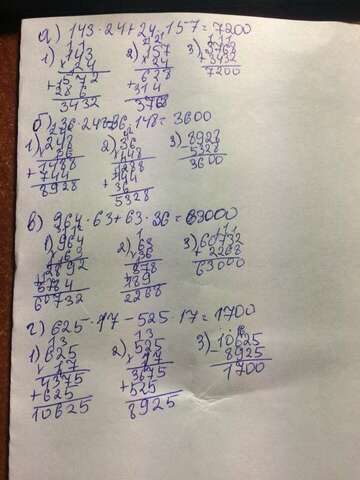 а) 143·24+24·157=7200
1) 143 2) 157 3) 3768
24 24 3432
572 628 7200
286 314
3432 3768
б) 36·248-36·148=3600
1) 248 2) 36 3) 8928
36 148 5328
1488 288 3600
744 144
8928 36
5328
в) 964·63+63·36=63000
1) 964 2) 63 3) 60732
63 36 2268
2892 378 63000
5784 189
60732 2268
г) 625·17-525·17=1700
1) 625 2) 525 3) 10625
17 17 8925
4375 3675 1700
625 525
10625 8925